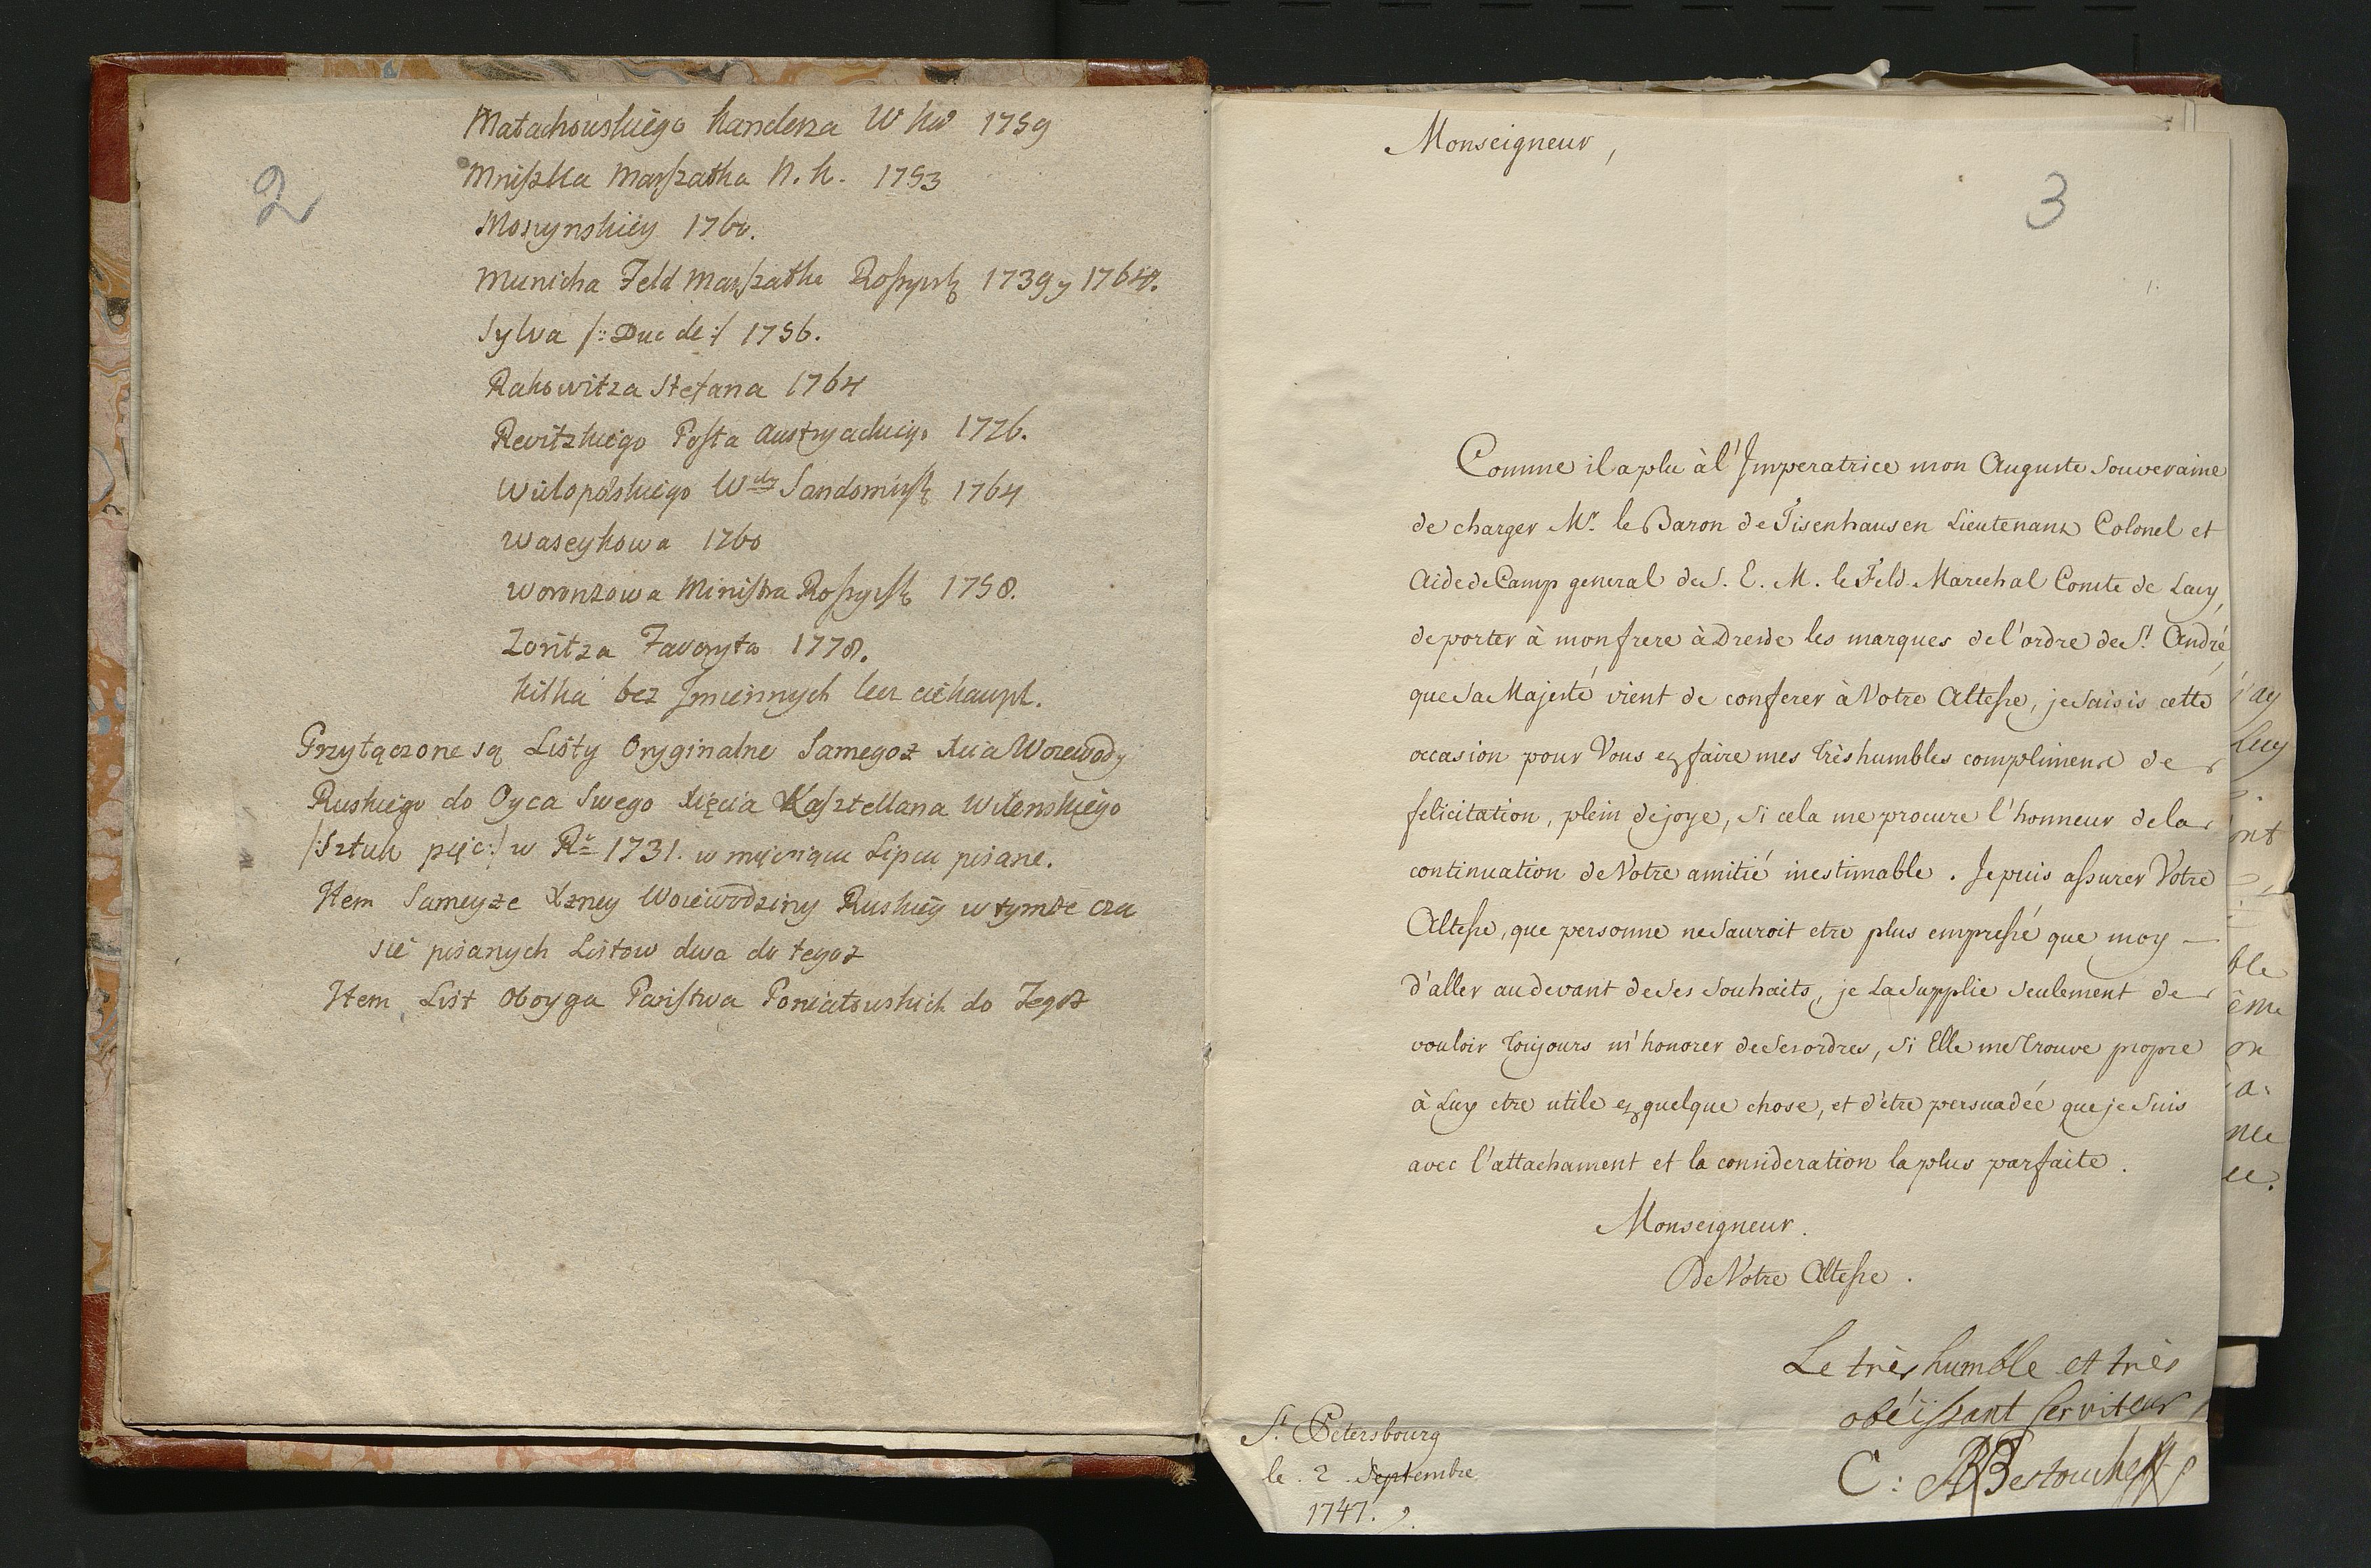 2
Małachowskiego Kanclerza W Kor 1759
Mniszka Marszałka N. K. 1753
Moszynskiey 1760.
Municha Feld Marszałka Roszysk 1739 y 1764.
Sylva /: Duc de :/ 1756.
Rakowitza Stefana 1764
Revitzkiego Posła Austryackiego 1776.
Wielopolskiego Wdy Sandomirsk 1764
Waseykowa 1760
Woronzowa Ministra Roszysk 1758.
Zoritza Favoryta 1778.
Kilka bez Jmiennych lecz ciekawych.
Przyłączone są Listy Oryginalne Samegoż Xcia Woiewody
Ruskiego do Oyca Swego Xięcia Kasztellana Wilenskiego
/: Sztuk pięć :/ w Rú 1731. w miesiącu Lipcu pisane.
Item Sameyże Xzney Woiewodziny Ruskiey w tymże cza
sie pisanych Listow dwa do tegoż
Item List Oboyga Państwa Poniatowskich do Tegoż
3
Monseigneur,
Comme il a plu à l'Imperatrice mon Auguste Souveraine
de charger Mr. le Baron de Tisenhausen Lieutenant Colonel et
Aide de Camp general de S. E. M. le Feld-Marechal Comte de Lacy,
de porter à mon frere à Dresde les marques de l'ordre de St. André,
que Sa Majesté vient de conferer à Votre Altesse, je saisis cette
occasion pour Vous en faire mes très humbles compliments de
felicitation, plein de joye, si cela me procure l'honneur de la
continuation de Votre amitié inestimable. Je puis assurer Votre
Altesse, que personne ne sauroit etre plus empressé que moy —
d'aller au devant de Ses souhaits, je La supplie seulement de
vouloir toujours m'honorer de Ses ordres, si Elle me trouve propre
à Luy etre utile en quelque chose, et d'etre persuadée que je suis
avec l'attachament et la consideration la plus parfaite.
Monseigneur.
De Votre Altesse.
Le très humble et très
obéissant serviteur,
C: A Bestoucheff
St. Petersbourg
le 2. Septembre
1747.
j'ay
Luy
ont
ble
ème
on
a-